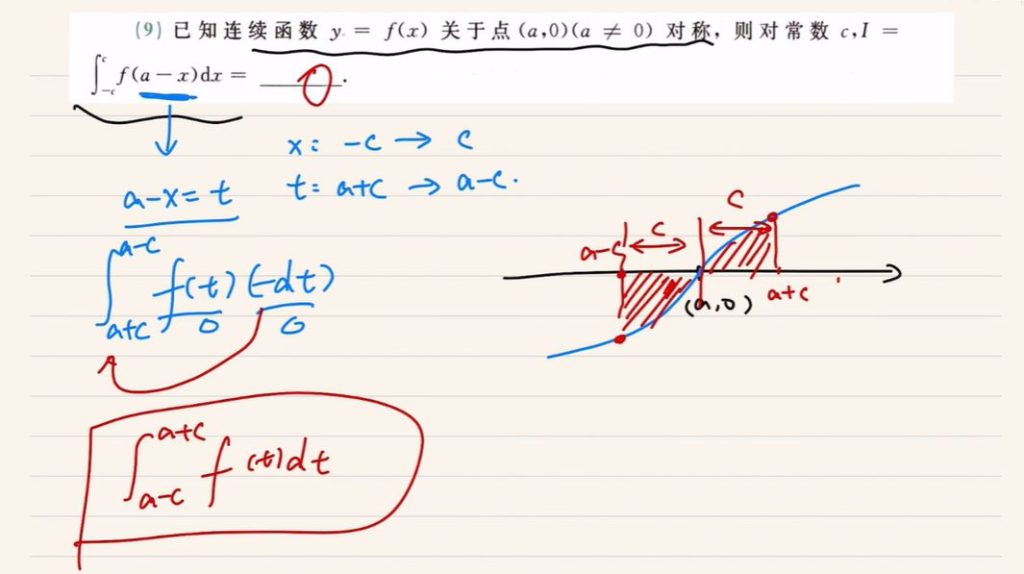 (9) 已知连续函数 y = f(x) 关于点 (a,0)(a ≠ 0) 对称，则对常数 c, I =
∫_{-c}^{c} f(a-x)dx = 0 .
x: -c → c
a-x=t t: a+c → a-c.
∫_{a+c}^{a-c} f(t) (-dt)
∫_{a-c}^{a+c} f(t)dt
c
c
a-c
(a,0) a+c